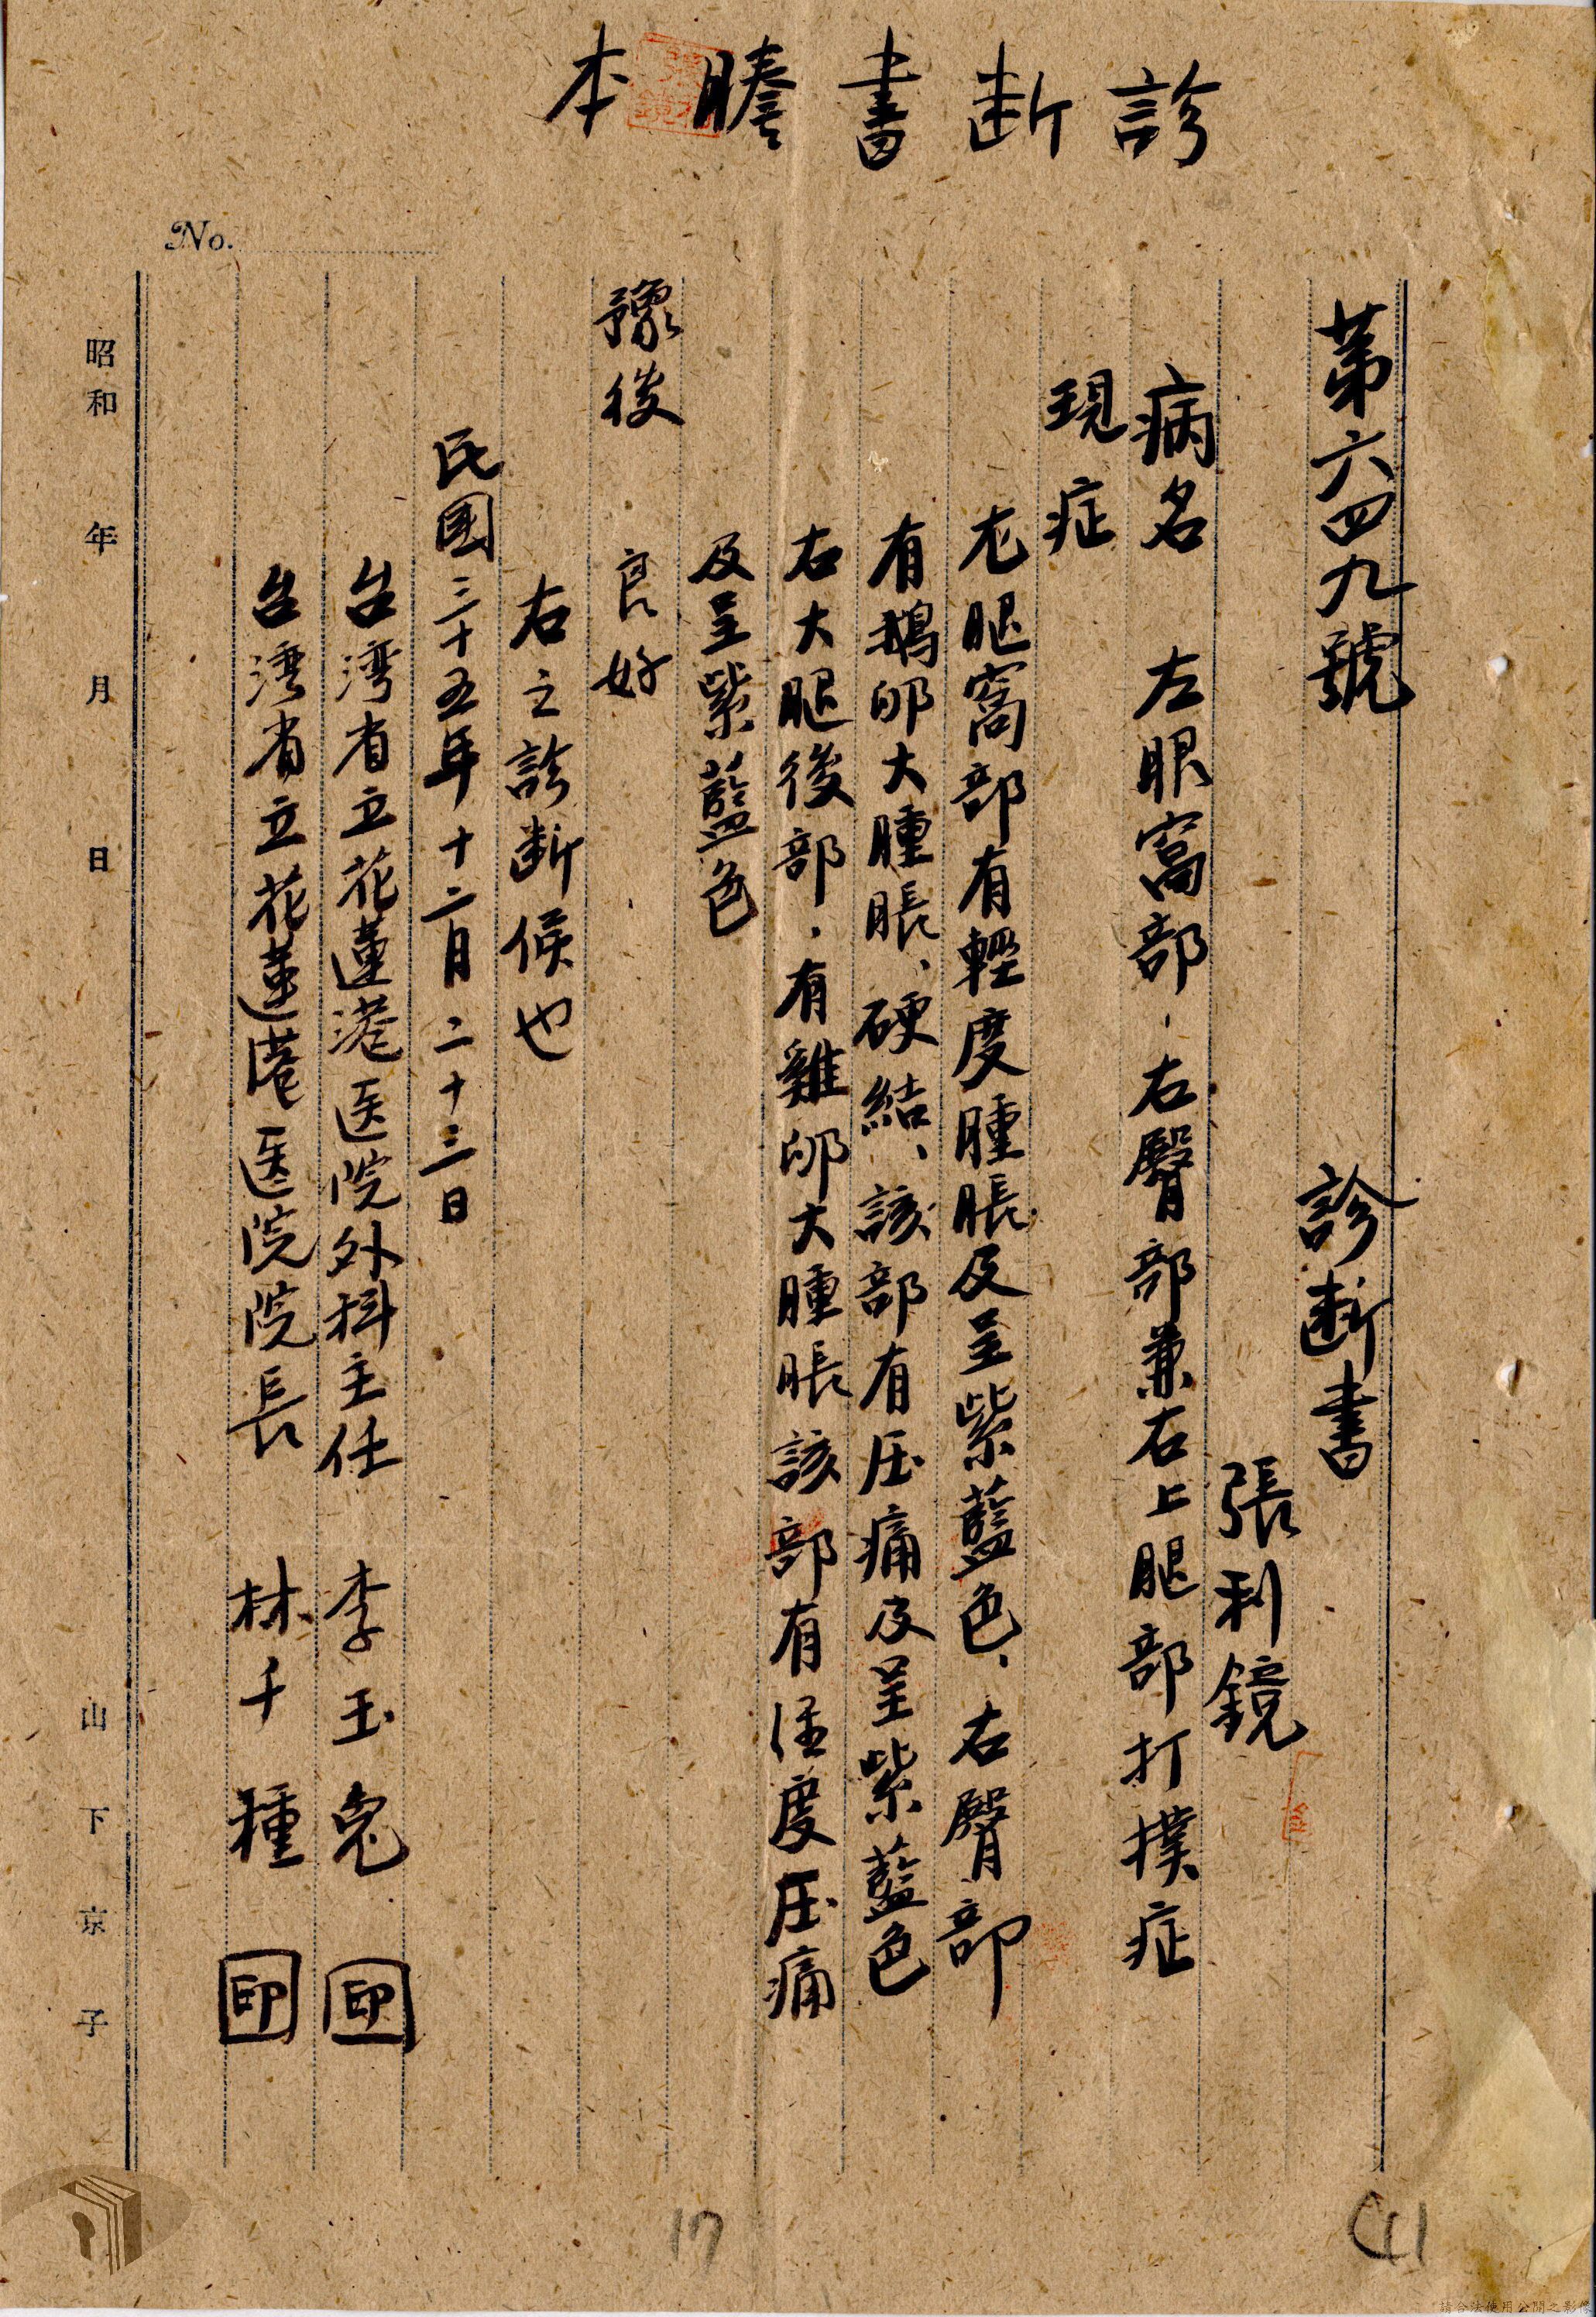 診断書謄本
No.
第六四九號 診断書
張利鏡
病名 左眼窩部、右臀部兼右上腿部打撲症
現症
左腿窩部有輕度腫脹及呈紫藍色、右臀部
有鵝卵大腫脹、硬結、該部有压痛及呈紫藍色
右大腿後部、有雞卵大腫脹該部有径度压痛
及呈紫藍色
豫後 良好
右之診断候也
民國三十五年十二月二十三日
台湾省立花蓮港医院外科主任 李玉兔 印
台湾省立花蓮港医院院長 林千種 印
昭和 年 月 日 山下京子
17
請合法使用公開之影像